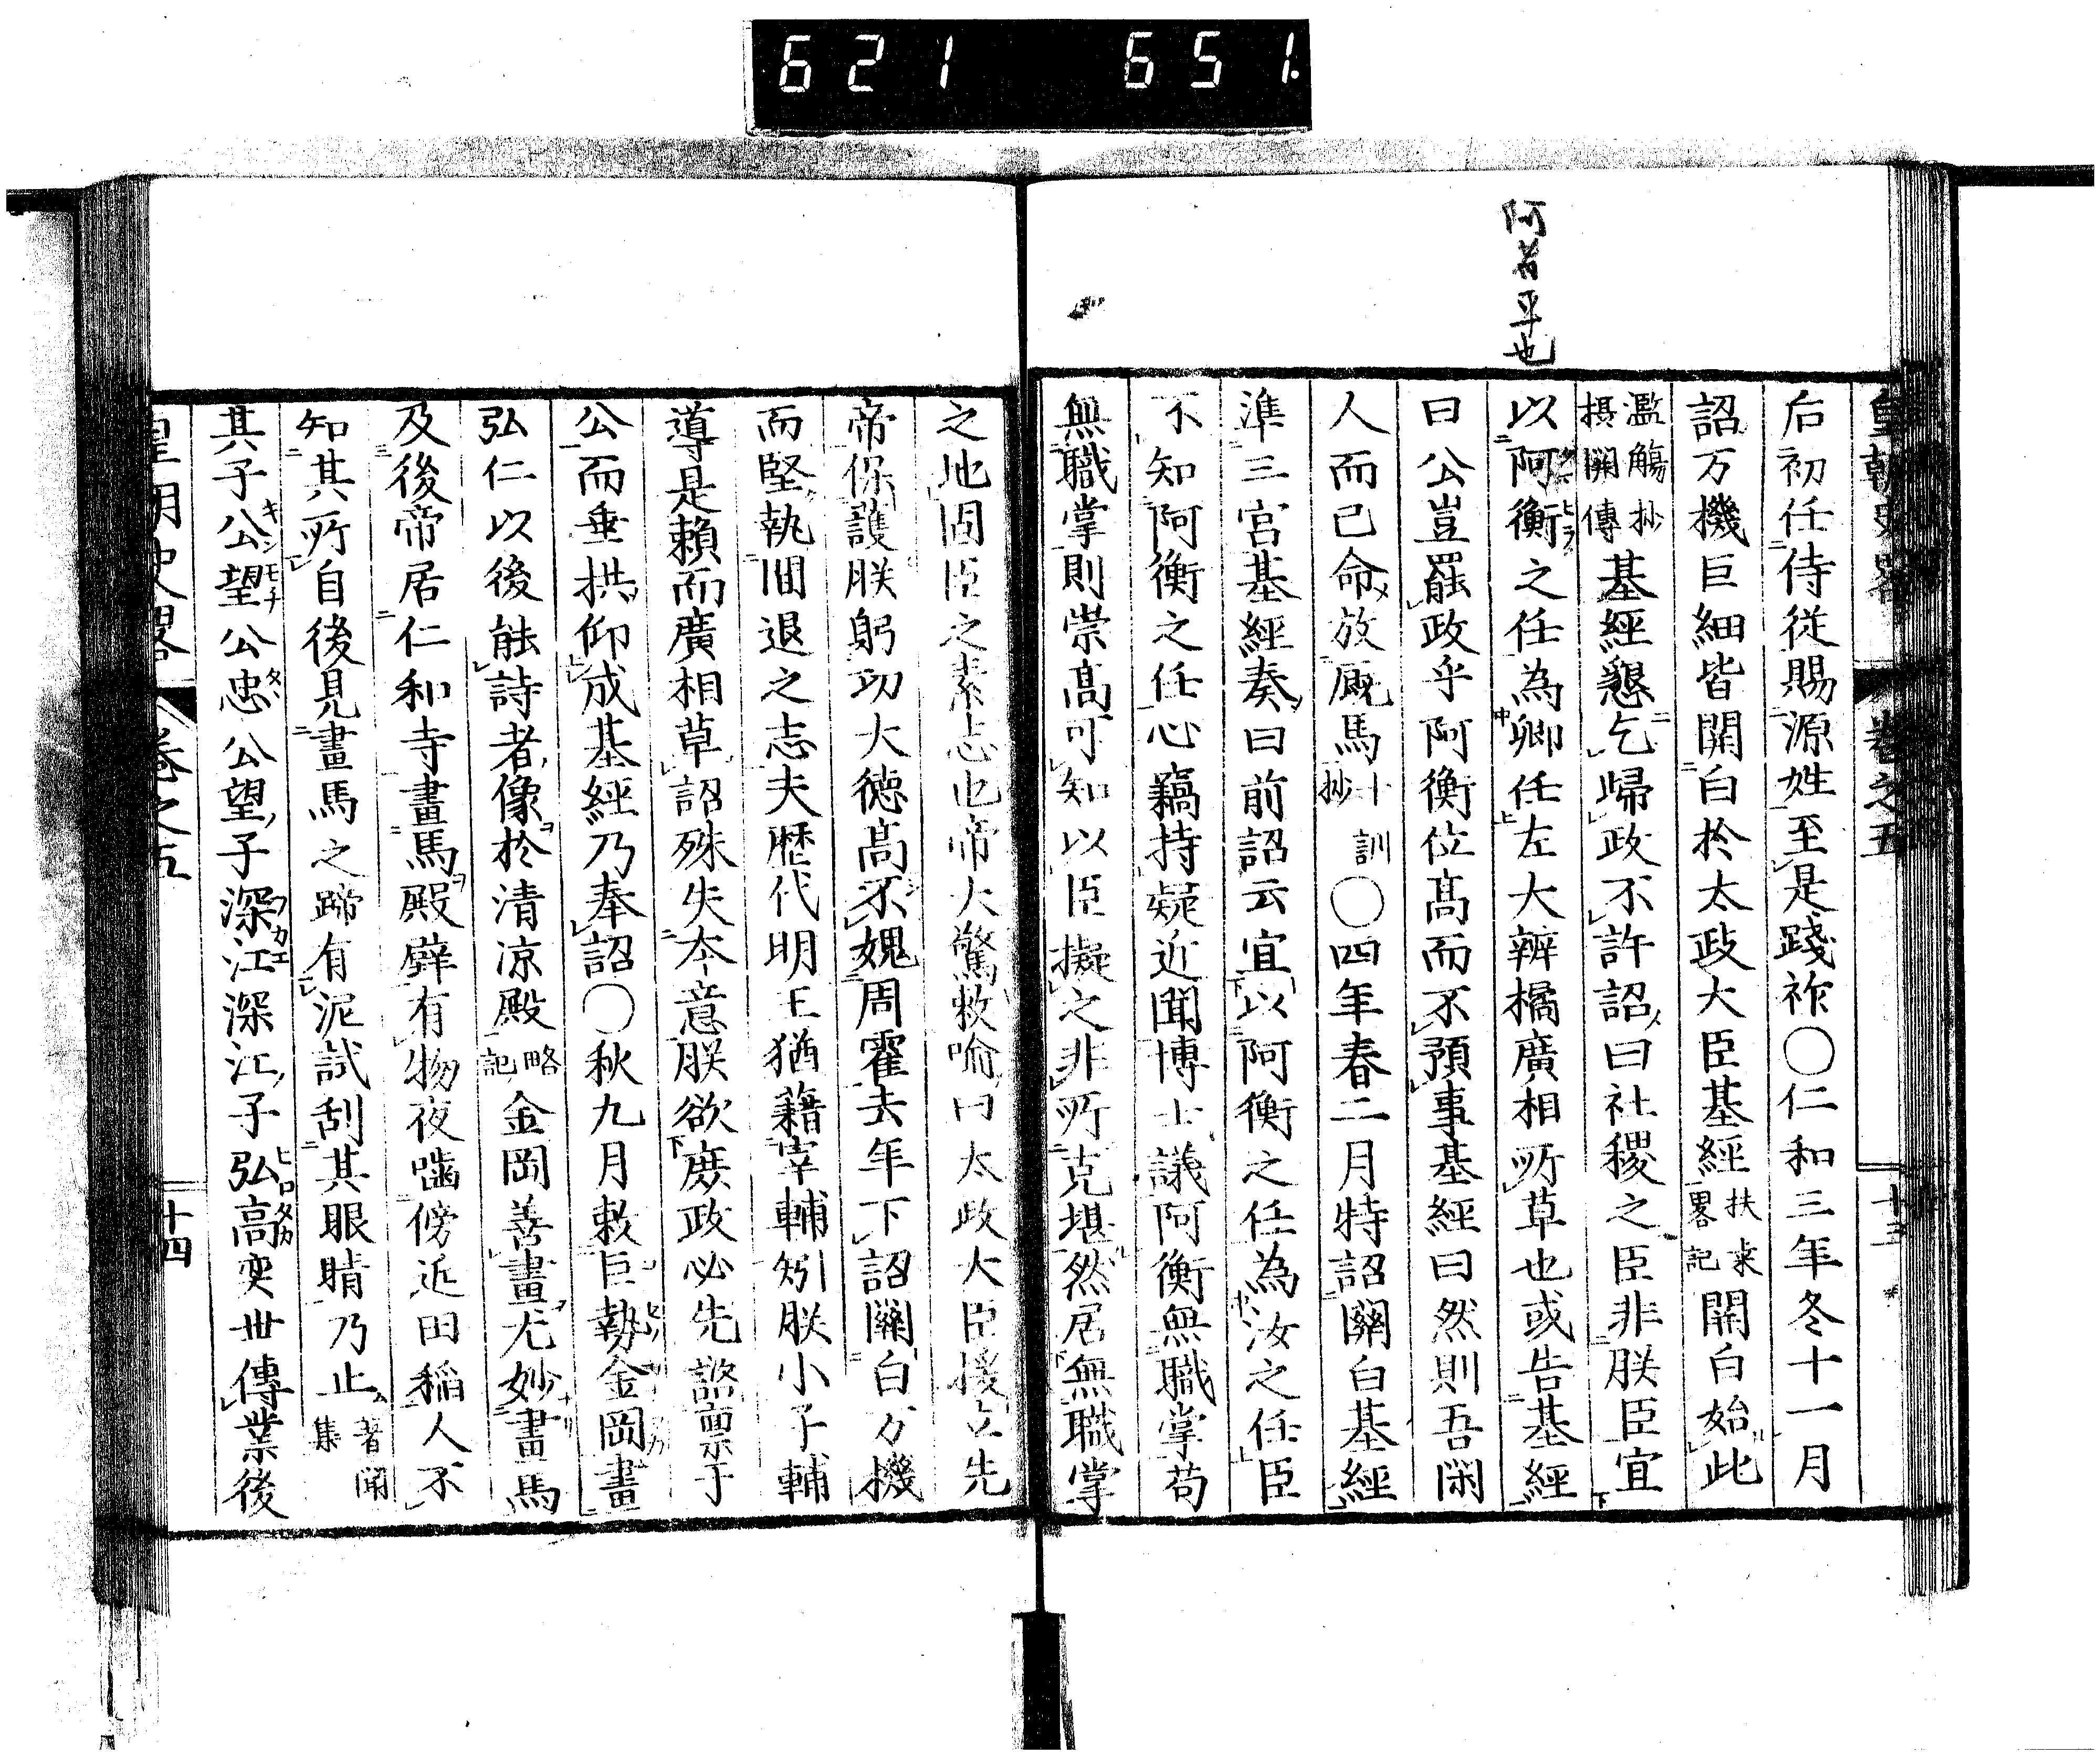 621 651.
阿者平也
皇朝史畧 卷之五 十三
后初任侍従賜源姓至是踐祚〇仁和三年冬十一月
詔万機巨細皆關白於太政大臣基經扶桑畧記關白始此
濫觴抄摂関傳基經懇乞歸政不許詔曰社稷之臣非朕臣宜
以阿衡之任為卿任左大辨橘廣相所草也或告基經
曰公豈罷政乎阿衡位髙而不預事基經曰然則吾閑
人而已命放廐馬十訓抄〇四年春二月特詔關白基經
準三宮基經奏曰前詔云宜以阿衡之任為汝之任臣
不知阿衡之任心竊持疑近聞博士議阿衡無職掌苟
無職掌則崇髙可知以臣擬之非所克堪然居無職掌
之地固臣之素志也帝大驚敕喻曰太政大臣援立先
帝保護朕躬功大徳髙不媿周霍去年下詔關白万機
而堅執囬退之志夫歴代明王猶藉宰輔矧朕小子輔
導是賴而廣相草詔殊失本意朕欲庶政必先諮禀于
公而垂拱仰成基經乃奉詔〇秋九月敕巨勢金岡畫
弘仁以後能詩者像於清凉殿略記金岡善畫尤妙畫馬
及後帝居仁和寺畫馬殿壁有物夜噛傍近田稲人不
知其所自後見畫馬之蹄有泥試刮其眼睛乃止著聞集
其子公望公忠公望子深江深江子弘高奕世傳業後
皇朝史畧 卷之五 十四